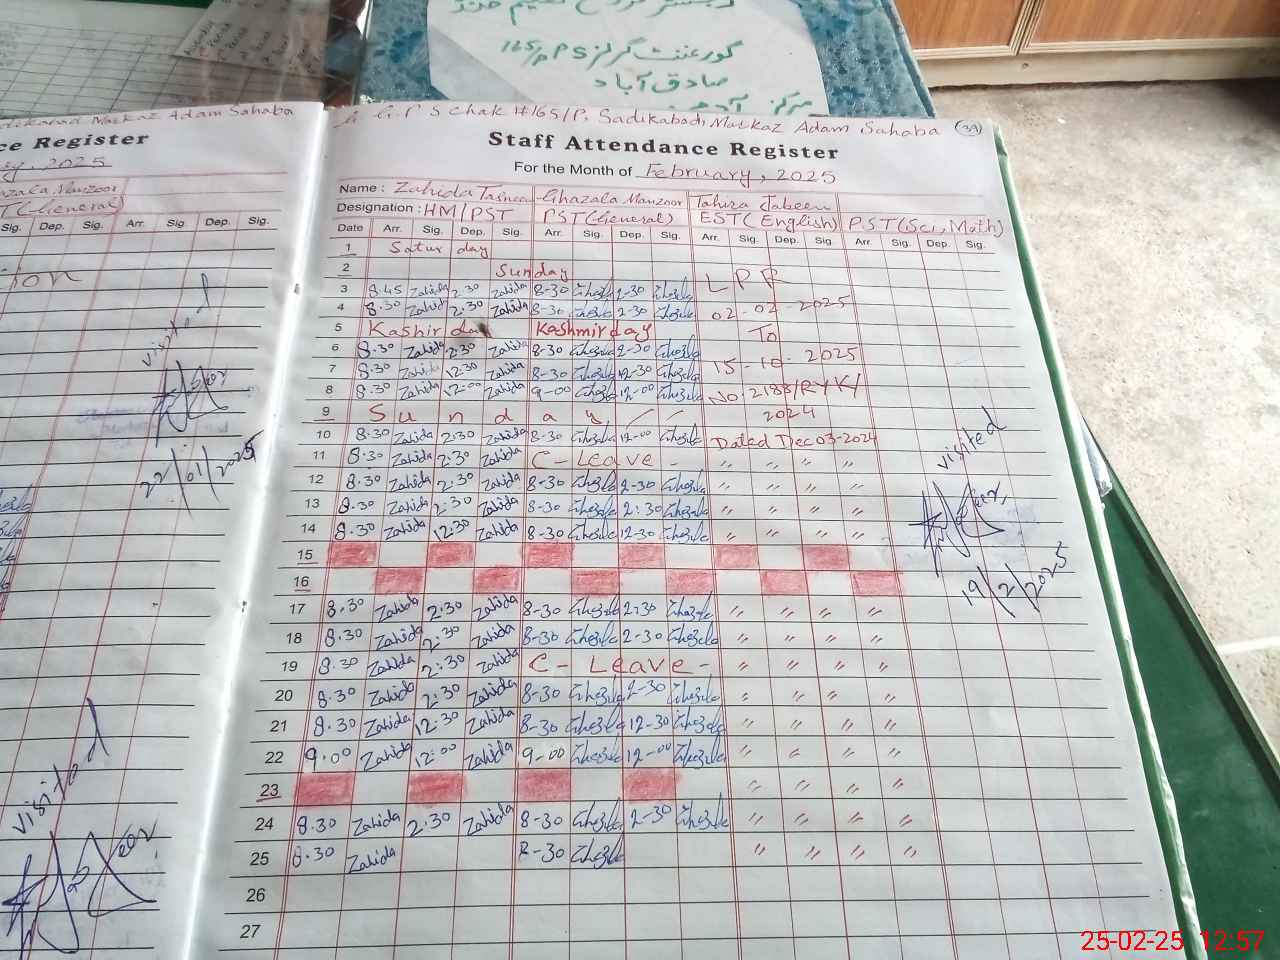 رجسٹر فروغ تعلیم فنڈ
گورنمنٹ گرلز PS 165/P
صادق آباد
مرکز آدم
Markaz Adam Sahaba
ce Register
2025
Manzoor
T(General)
Sig. Arr. Sig. Dep. Sig.
visited
22/01/2025
visited
G. G. P S Chak #165/P, Sadikabad, Markaz Adam Sahaba 39
Staff Attendance Register
For the Month of February, 2025
Name : Zahida Tasneem Ghazala Manzoor Tahira Jabeen
Designation : HM/PST PST(General) EST(English) PST(Sci, Math)
Date Arr. Sig. Dep. Sig. Arr. Sig. Dep. Sig. Arr. Sig. Dep. Sig. Arr. Sig. Dep. Sig.
1 Satur day
2 Sunday LPR
3 8.45 Zahida 2.30 Zahida 8-30 Ghazala 2-30 Ghazala
4 8.30 Zahida 2.30 Zahida 8-30 Ghazala 2-30 Ghazala 02-02-2025
5 Kashir day Kashmir day To
6 8.30 Zahida 2.30 Zahida 8-30 Ghazala 2-30 Ghazala
7 8.30 Zahida 12.30 Zahida 8-30 Ghazala 12-30 Ghazala 15-10-2025
8 8.30 Zahida 12:00 Zahida 9-00 Ghazala 12-00 Ghazala No. 2188/RYK/
9 Sunday 2024
10 8.30 Zahida 2:30 Zahida 8-30 Ghazala 12-00 Ghazala Dated Dec 03-2024
11 8.30 Zahida 2:30 Zahida C-Leave - " " " "
12 8.30 Zahida 2:30 Zahida 8-30 Ghazala 2-30 Ghazala " " " "
13 8.30 Zahida 2:30 Zahida 8-30 Ghazala 2:30 Ghazala " " " "
14 8.30 Zahida 12:30 Zahida 8-30 Ghazala 12-30 Ghazala " " " "
15
16
17 8.30 Zahida 2:30 Zahida 8-30 Ghazala 2:30 Ghazala " " " "
18 8.30 Zahida 2:30 Zahida 8-30 Ghazala 2-30 Ghazala " " " "
19 8.30 Zahida 2:30 Zahida C- Leave - " " " "
20 8.30 Zahida 2:30 Zahida 8-30 Ghazala 2-30 Ghazala " " " "
21 8.30 Zahida 12:30 Zahida 8-30 Ghazala 12-30 Ghazala " " " "
22 9.00 Zahida 12:00 Zahida 9-00 Ghazala 12-00 Ghazala " " " "
23 " " " "
24 8.30 Zahida 2:30 Zahida 8-30 Ghazala 2-30 Ghazala " " " "
25 8.30 Zahida 8-30 Ghazala " " " "
26
27
visited
19/2/2025
25-02-25 12:57